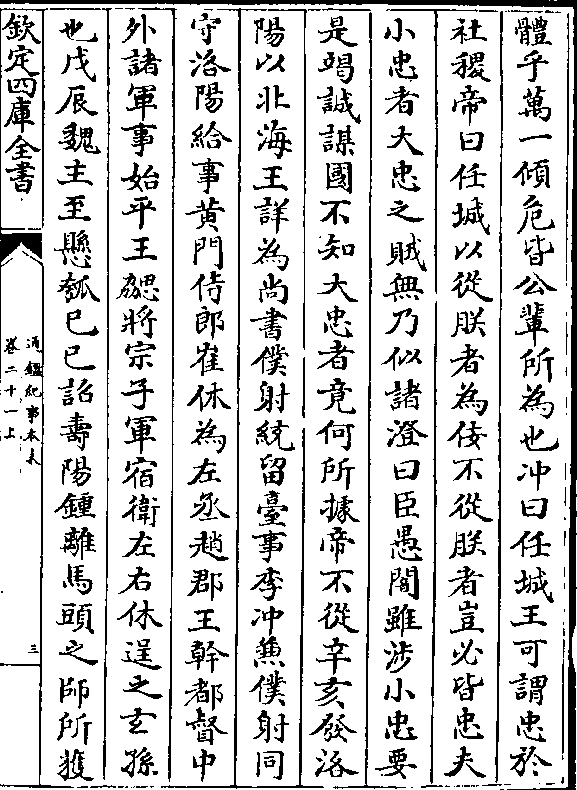 體乎萬一傾危皆公輩所為也冲曰任城王可謂忠於
社稷帝曰任城以從朕者為佞不從朕者豈必皆忠夫
小忠者大忠之賊無乃似諸澄曰臣愚闇雖涉小忠要
是竭誠謀國不知大忠者竟何所據帝不從辛亥發洛
陽以北海王詳為尚書僕射統留臺事李冲兼僕射同
守洛陽給事黄門侍郎崔休為左丞趙郡王幹都督中
外諸軍事始平王勰將宗子軍宿衛左右休逞之玄孫
也戊辰魏主至懸瓠巳巳詔壽陽鍾離馬頭之師所獲
欽定四庫全書
通鑑紀事本末
卷二十一上
三